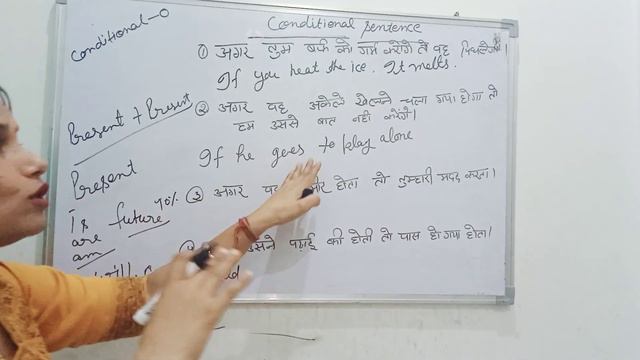 Conditional sentence
Conditional-0
① अगर तुम बर्फ को गर्म करोगे तो वह पिघलेगी।
If you heat the ice. It melts.
Present + Present
② अगर वह अकेले खेलने चला गया होगा तो
हम उससे बात नहीं करेंगे।
If he goes to play alone
Present
③ अगर होता तो तुम्हारी मदद करता।
is future 40%
are
am
उसने पढ़ाई की होती तो पास हो गया होता।